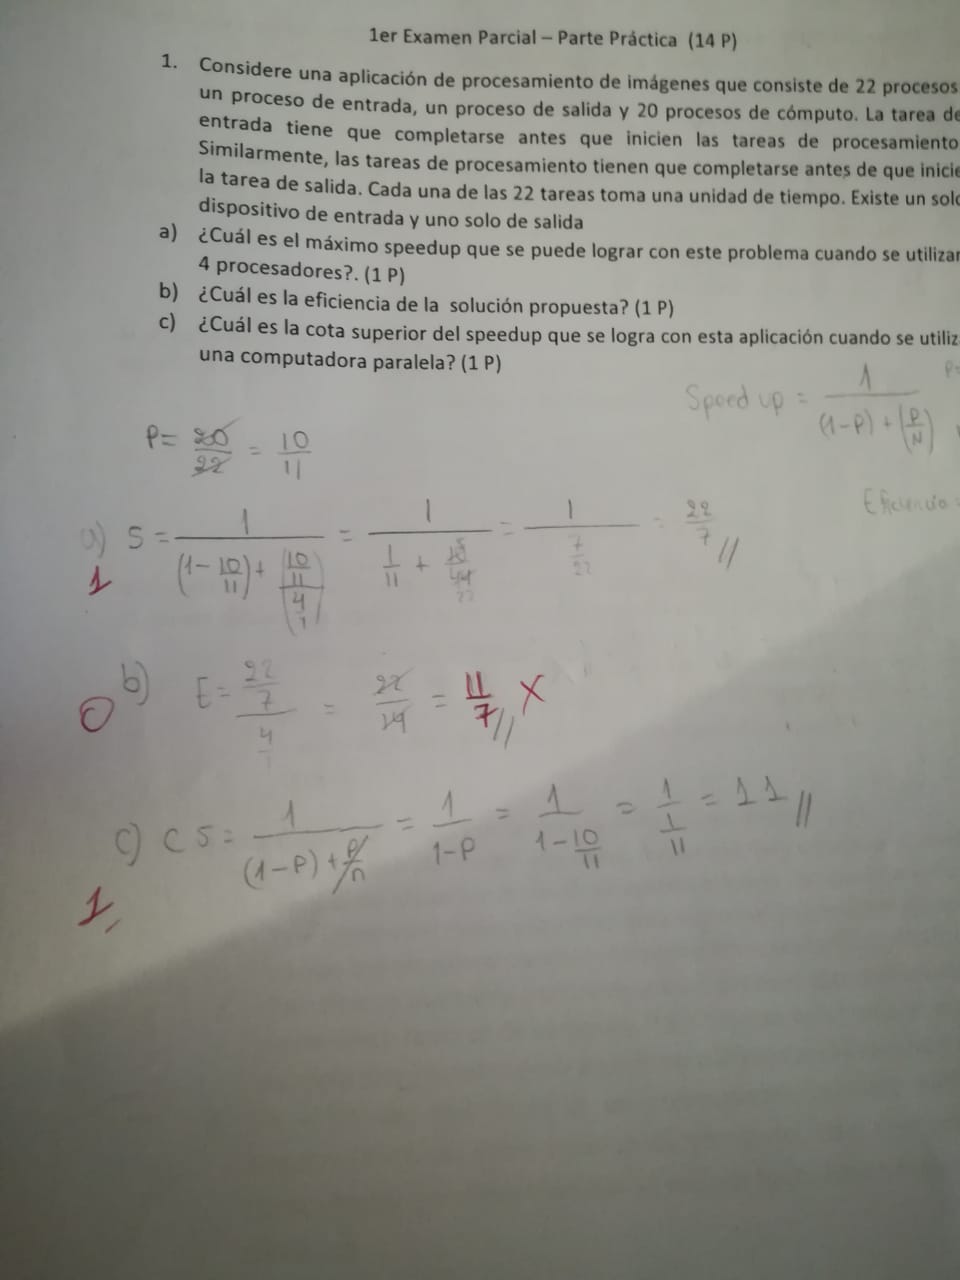 1er Examen Parcial – Parte Práctica (14 P)
1. Considere una aplicación de procesamiento de imágenes que consiste de 22 procesos
un proceso de entrada, un proceso de salida y 20 procesos de cómputo. La tarea de
entrada tiene que completarse antes que inicien las tareas de procesamiento
Similarmente, las tareas de procesamiento tienen que completarse antes de que inicie
la tarea de salida. Cada una de las 22 tareas toma una unidad de tiempo. Existe un solo
dispositivo de entrada y uno solo de salida
a) ¿Cuál es el máximo speedup que se puede lograr con este problema cuando se utilizan
4 procesadores?. (1 P)
b) ¿Cuál es la eficiencia de la solución propuesta? (1 P)
c) ¿Cuál es la cota superior del speedup que se logra con esta aplicación cuando se utiliza
una computadora paralela? (1 P)
Speed up = 1 / ((1-P) + (P/N))
P=
P = 20/22 = 10/11
Eficiencia =
a) S = 1 / ((1 - 10/11) + ((10/11)/(4/1))) = 1 / (1/11 + 10/44) = 1 / (7/22) = 22/7 //
1
b) E = (22/7)/(4/1) = 22/14 = 11/7 // X
0
c) CS = 1 / ((1-P) + P/n) = 1 / (1-P) = 1 / (1 - 10/11) = 1 / (1/11) = 11 //
1